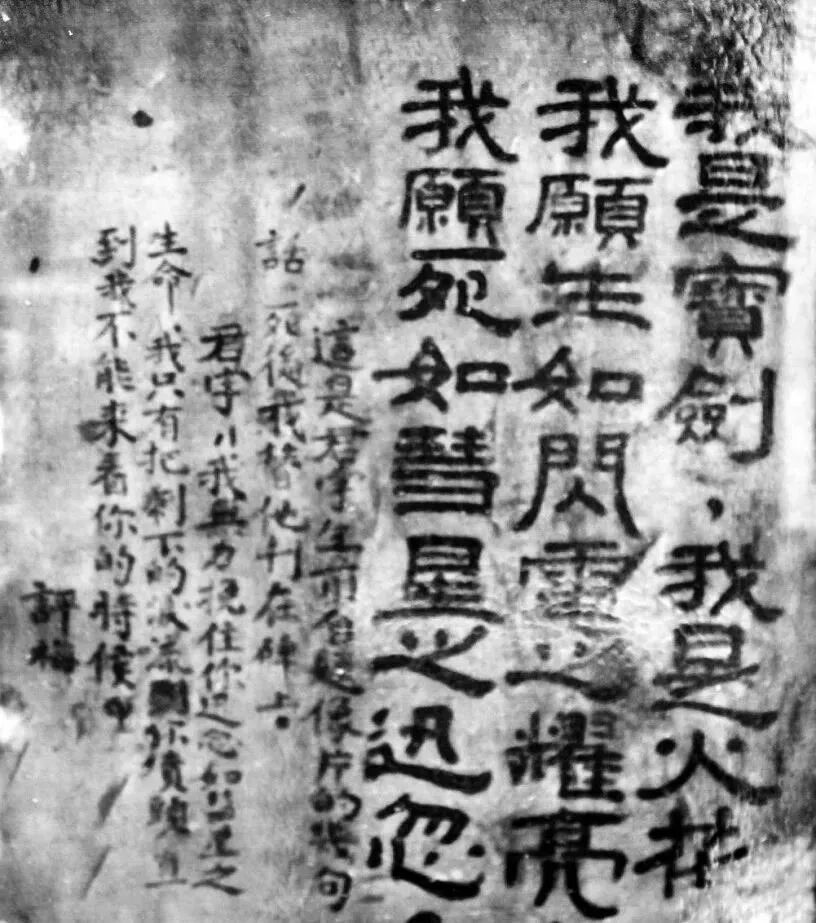 我是寶劍，我是火花
我願生如閃電之耀亮
我願死如彗星之迅忽
這是君宇生前自題像片的幾句
話，死後我替他刊在碑上。
君宇！我無力挽住你迅忽如彗星之
生命，我只有把剩下的淚流到你墳頭直
到我不能來看你的時候
評梅